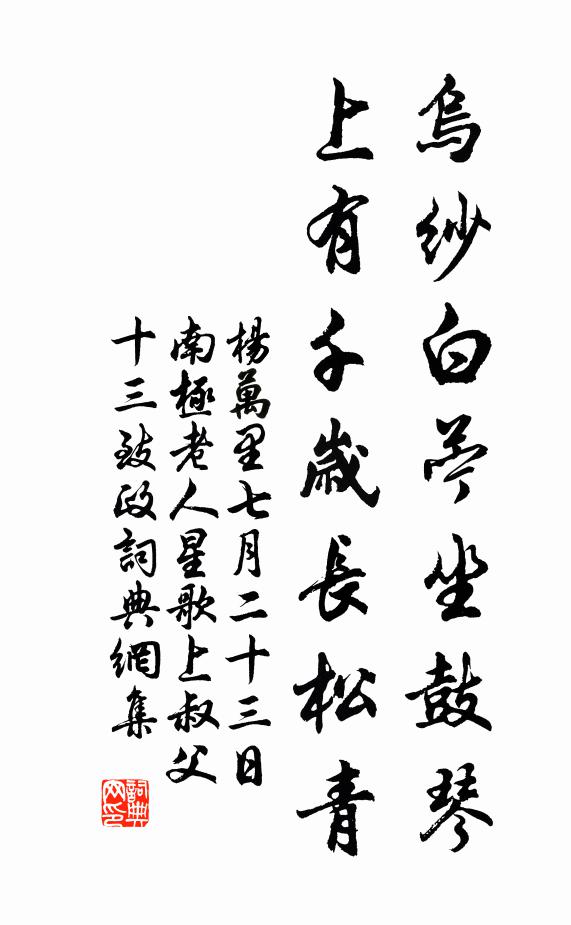 烏紗白苧坐鼓琴
上有千歲長松青
楊萬里七月二十三日
南極老人星歌上叔父
十三致政詞典網集
詞典
网印